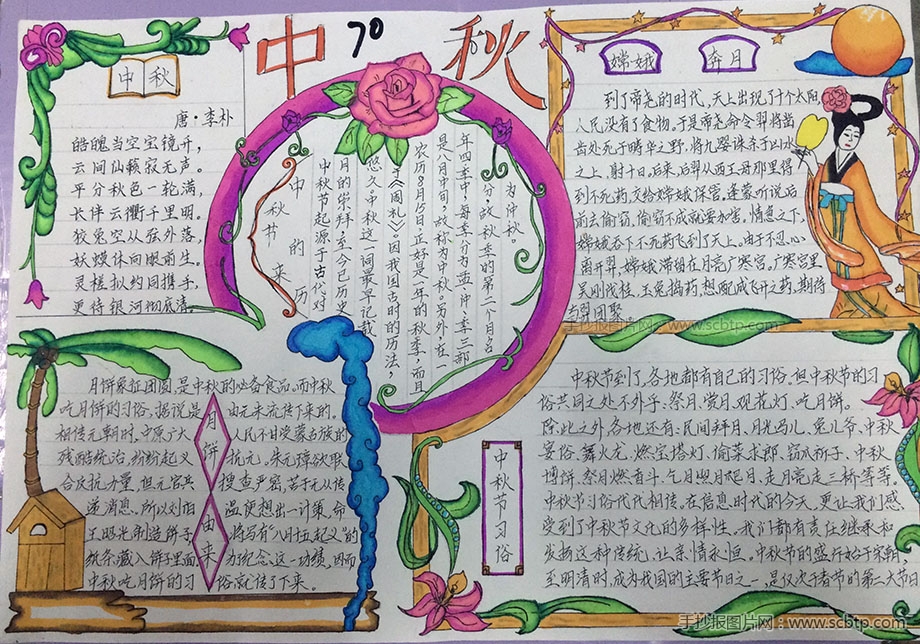 中秋
70
中秋
唐·李朴
皓魄当空宝镜开，
云间仙籁寂无声。
平分秋色一轮满，
长伴云衢千里明。
狡兔空从弦外落，
妖蟆休向眼前生。
灵槎拟约同携手，
更待银河彻底清。
中秋节的来历
中秋节起源于古代对
月的崇拜，至今已历史
悠久。中秋这一词最早记载
于《周礼》，因我国古时的历法
农历8月15日正好是一年的秋季，而且
是八月中旬，故称为中秋。另外，在一
年四季中，每季分为孟、仲、季三部
分，故秋季的第二个月名
为仲秋。
嫦娥
奔月
到了帝尧的时代，天上出现了十个太阳，
人民没有了食物。于是帝尧命令羿将凿
齿处死于畴华之野，将九婴诛杀于凶水
之上，射十日。后来，后羿从西王母那里得
到不死药，交给嫦娥保管。逢蒙听说后
前去偷窃，偷窃不成就要加害，情急之下，
嫦娥吞下不死药飞到了天上。由于不忍心
离开羿，嫦娥滞留在月亮广寒宫。广寒宫里
吴刚伐桂，玉兔捣药，想配成飞升之药，期待
与羿团聚
手抄报图片网：www.scbtp.com
月饼由来
月饼象征团圆，是中秋的必备食品。而中秋
吃月饼的习俗，据说是由元末流传下来的。
相传元朝时，中原广大人民不甘受蒙古族的
残酷统治，纷纷起义抗元。朱元璋欲联
合反抗力量，但元官兵搜查严密，苦于无从传
递消息。所以刘伯温便想出一计策，命
王昭光制造饼子，将写有“八月十五起义”的
纸条藏入饼子里面。为纪念这一功绩，因而
中秋吃月饼的习俗就传了下来。
中秋节习俗
中秋节到了，各地都有自己的习俗。但中秋节的习
俗共同之处不外乎：祭月、赏月、观花灯、吃月饼。
除此之外，各地还有：民间拜月、月光马儿、兔儿爷、中秋
宴俗、舞火龙、燃宝塔灯、偷菜求郎、窃瓜祈子、中秋
博饼、祭月燃香斗、乞月照月爬月、走月亮走三桥等等。
中秋节习俗代代相传。在信息时代的今天，更让我们感
受到了中秋节文化的多样性。我们都有责任继承和
发扬这种传统，让亲情永恒。中秋节的盛行始于宋朝，
至明清时，成为我国的主要节日之一，是仅次于春节的第二大节日
手抄报图片网：www.scbtp.com